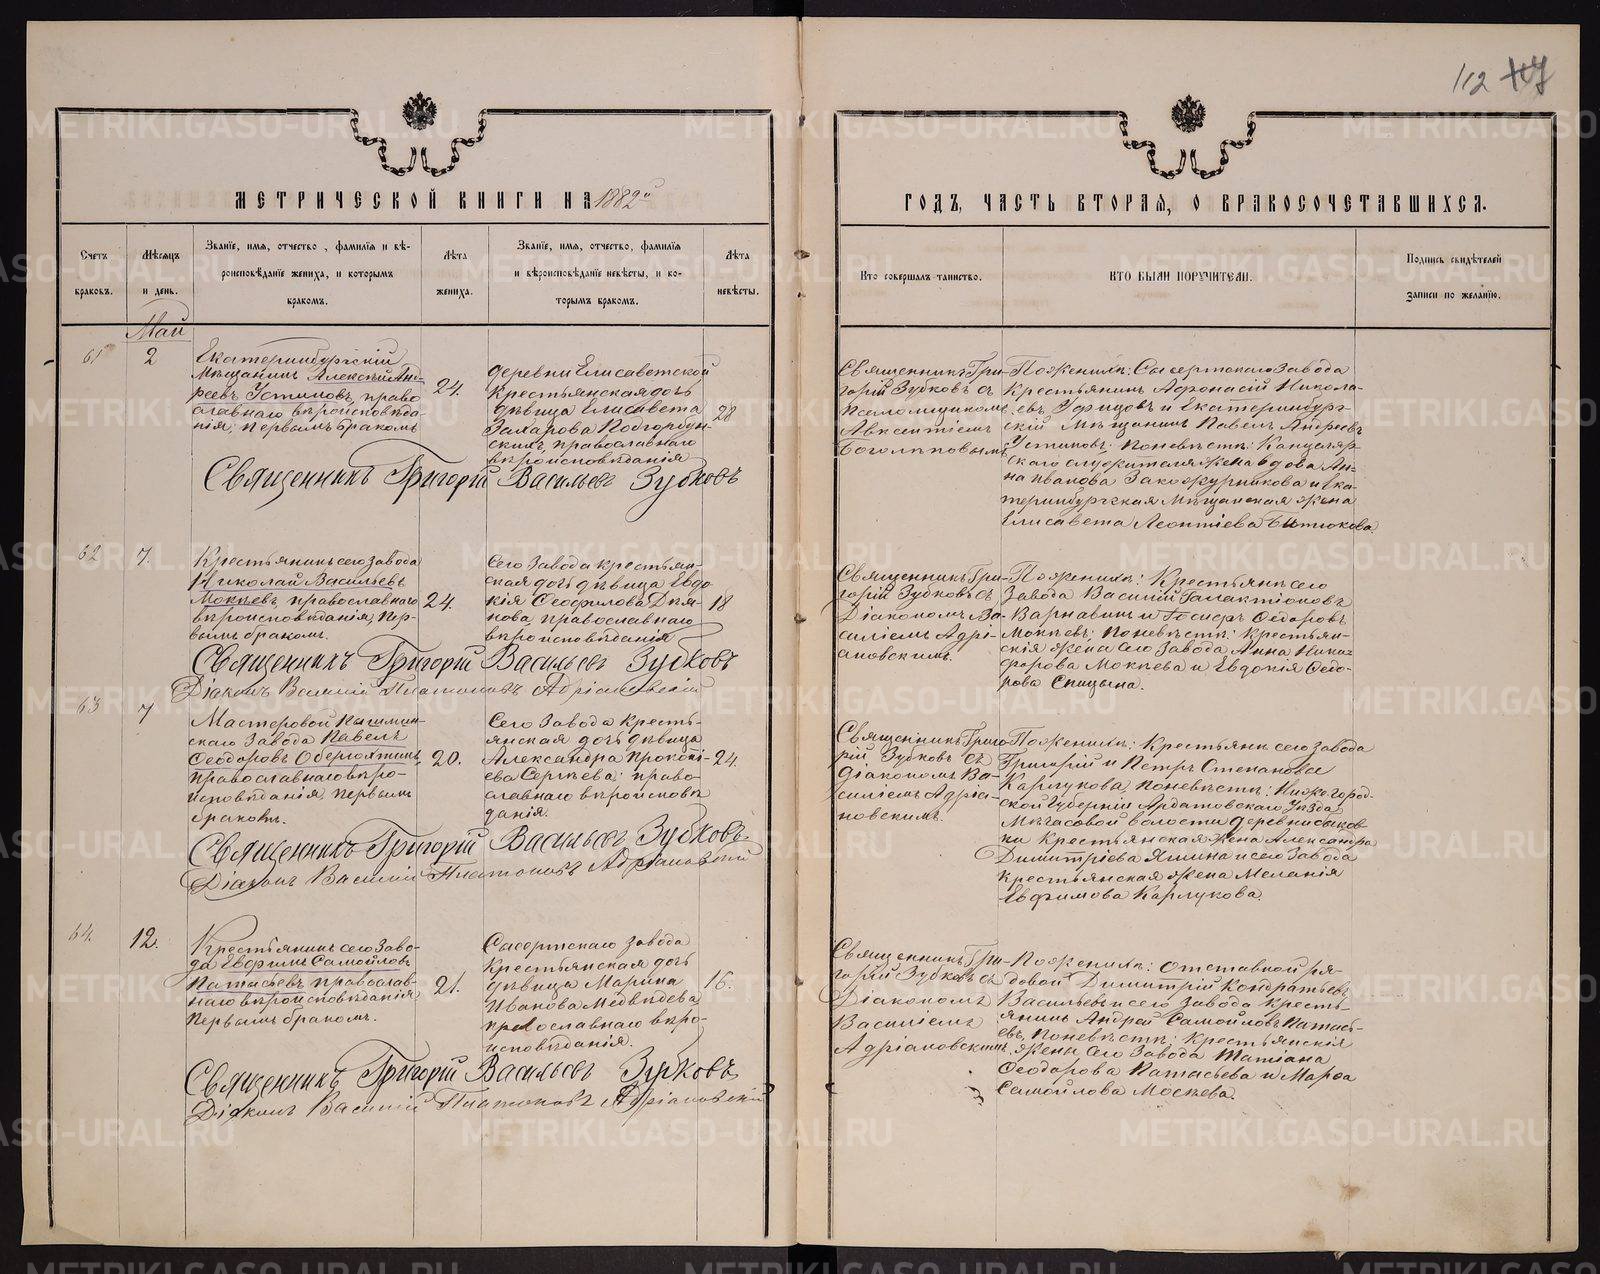 112
МЕТРИЧЕСКОЙ КНИГИ НА 1882й
ГОДЪ, ЧАСТЬ ВТОРАЯ, О БРАКОСОЧЕТАВШИХСЯ.
Счетъ
браковъ.
Мѣсяцъ
и день.
Званіе, имя, отчество, фамилія и вѣ-
роисповѣданіе жениха, и которымъ
бракомъ.
Лѣта
жениха.
Званіе, имя, отчество, фамилія
и вѣроисповѣданіе невѣсты, и ко-
торымъ бракомъ.
Лѣта
невѣсты.
Кто совершалъ таинство.
КТО БЫЛИ ПОРУЧИТЕЛИ.
Подпись свидѣтелей
записи по желанію.
Май
61
2
Екатеринбургскій
Мѣщанинъ Алексѣй Анд-
реевъ Устиновъ, право
славнаго вѣроисповѣда-
нія, первымъ бракомъ
24.
деревни Елисаветской
Крестьянская дочь
дѣвица Елисавета
Захарова Подгорбун-
скихъ, православнаго
вѣроисповѣданія
28
Священникъ Гри-
горій Зубковъ съ
Псаломщикомъ
Авксентіемъ
Боголѣповымъ
По женихѣ: Сысертскаго Завода
Крестьянинъ Афонасій Никола-
евъ Уфицовъ и Екатеринбург-
скій Мѣщанинъ Павелъ Андреевъ
Устиновъ; по невѣстѣ: Канцеляр-
скаго служителя жена вдова Ан-
на Иванова Закожурникова и Ека-
теринбургская Мѣщанская жена
Елисавета Леонтіева Битюкова.
Священникъ Григорій Васильевъ Зубковъ
62
7.
Крестьянинъ сего Завода
Николай Васильевъ
Мокѣевъ, православнаго
вѣроисповѣданія, пер-
вымъ бракомъ.
24.
Сего Завода крестьян-
ская дочь дѣвица Евдо
кія Ѳеофилова Демя-
нова, православнаго
вѣроисповѣданія
18
Священникъ Гри-
горій Зубковъ съ
Діакономъ Ва-
силіемъ Адрі-
ановскимъ.
По женихѣ: Крестьяне сего
Завода Василій Галактіоновъ
Варнавинъ и Ѳедоровъ
Мокѣевъ; по невѣстѣ: Крестьян-
скія жены сего Завода Анна Ники-
форова Мокѣева и Евдокія Ѳедо-
рова Спицына.
Священникъ Григорій Васильевъ Зубковъ
Діаконъ Василій Платоновъ Адріановскій
63
7
Мастеровой Кыштым-
скаго Завода Павелъ
Ѳеодоровъ Обер
православнаго вѣро-
исповѣданія, первымъ
бракомъ.
20.
Сего Завода кресть-
янская дочь дѣвица
Александра Прокопі-
ева Сергѣева; право-
славнаго вѣроисповѣ
данія.
24.
Священникъ Григо
рій Зубковъ съ
діакономъ Ва-
силіемъ Адріа-
новскимъ.
По женихѣ: Крестьяне сего Завода
Григорій и Петръ Степановы
Карлукова, по невѣстѣ: Нижегород-
ской Губерніи Ардатовскаго Уѣзда,
волости деревни
ки Крестьянская жена Александра
Димитріева Яшина и сего Завода
крестьянская жена Меланія
Евфимова Карлукова.
Священникъ Григорій Васильевъ Зубковъ
Діаконъ Василій Платоновъ Адріановскій
64.
12.
Крестьянинъ сего Заво-
да Евфимъ Самойловъ
Паташевъ, православ-
наго вѣроисповѣданія,
первымъ бракомъ.
21.
Сысертскаго Завода
Крестьянская дочь
дѣвица Марина
Иванова Медвѣдева
православнаго вѣро-
исповѣданія.
16.
Священникъ Гри-
горій Зубковъ съ
Діакономъ
Василіемъ
Адріановскимъ.
По женихѣ: отставной ря-
довой Димитрій Кондратьевъ
Васильевъ и сего Завода кресть-
янинъ Андрей Самойловъ Паташ-
евъ, по невѣстѣ: Крестьянскія
жены сего Завода Татіана
Ѳеодорова Паташева и Марѳа
Самойлова Москвева.
Священникъ Григорій Васильевъ Зубковъ
Діаконъ Василій Платоновъ Адріановскій
METRIKI.GASO-URAL.RU